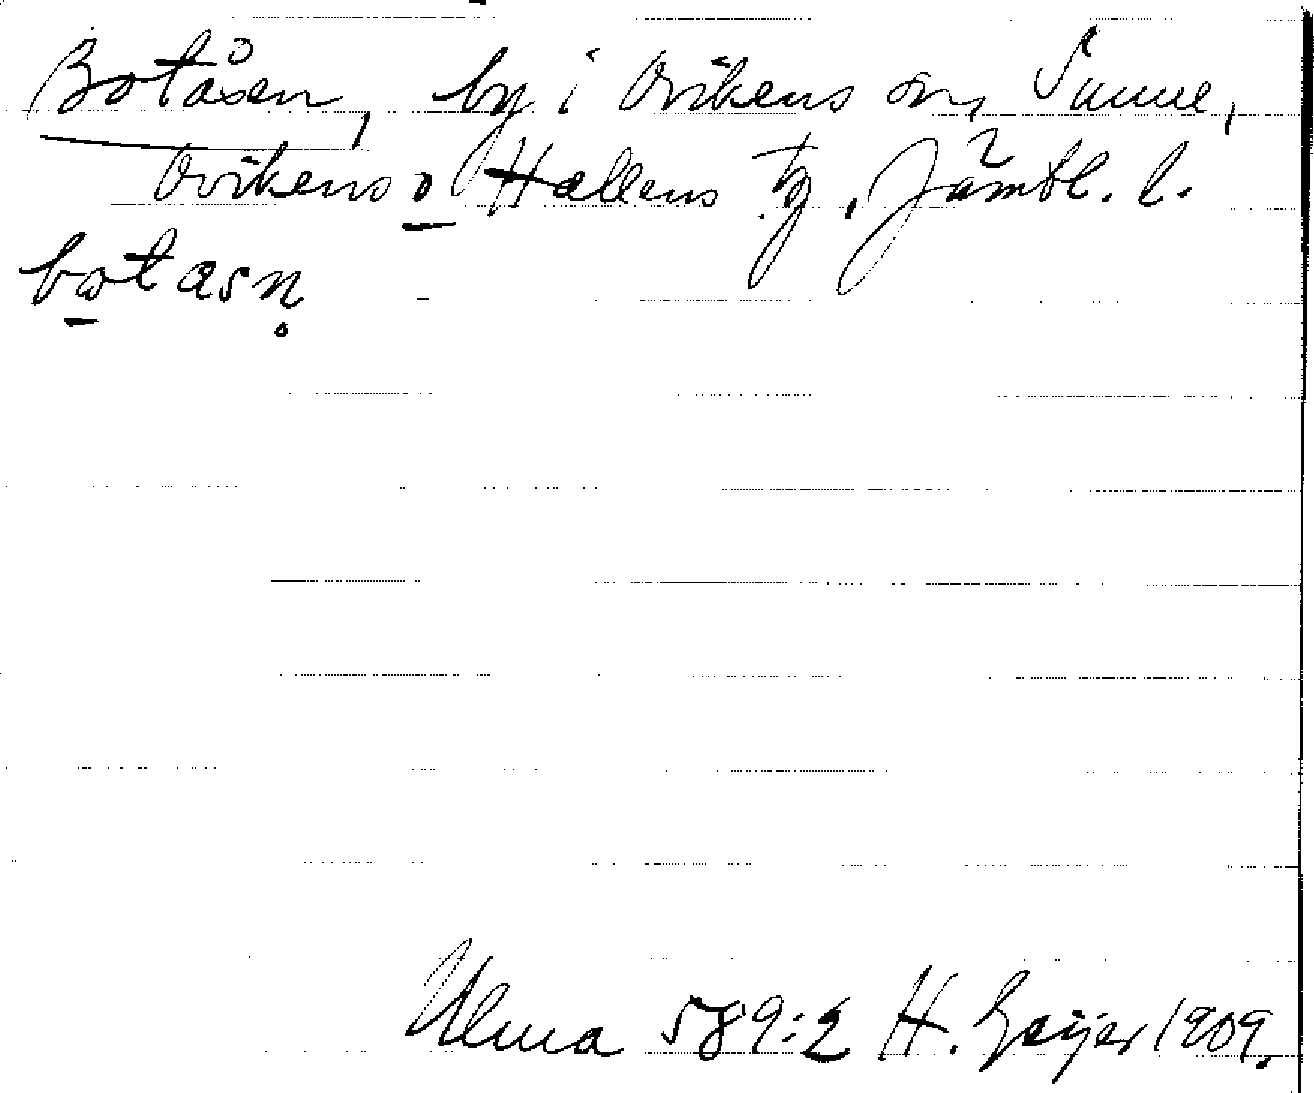 Botåsen, by i Ovikens sn, Sunne,
Ovikens o Hallens tg, Jämtl. l.
botasn̥
Ulma 589:2 H. Geijer 1909.